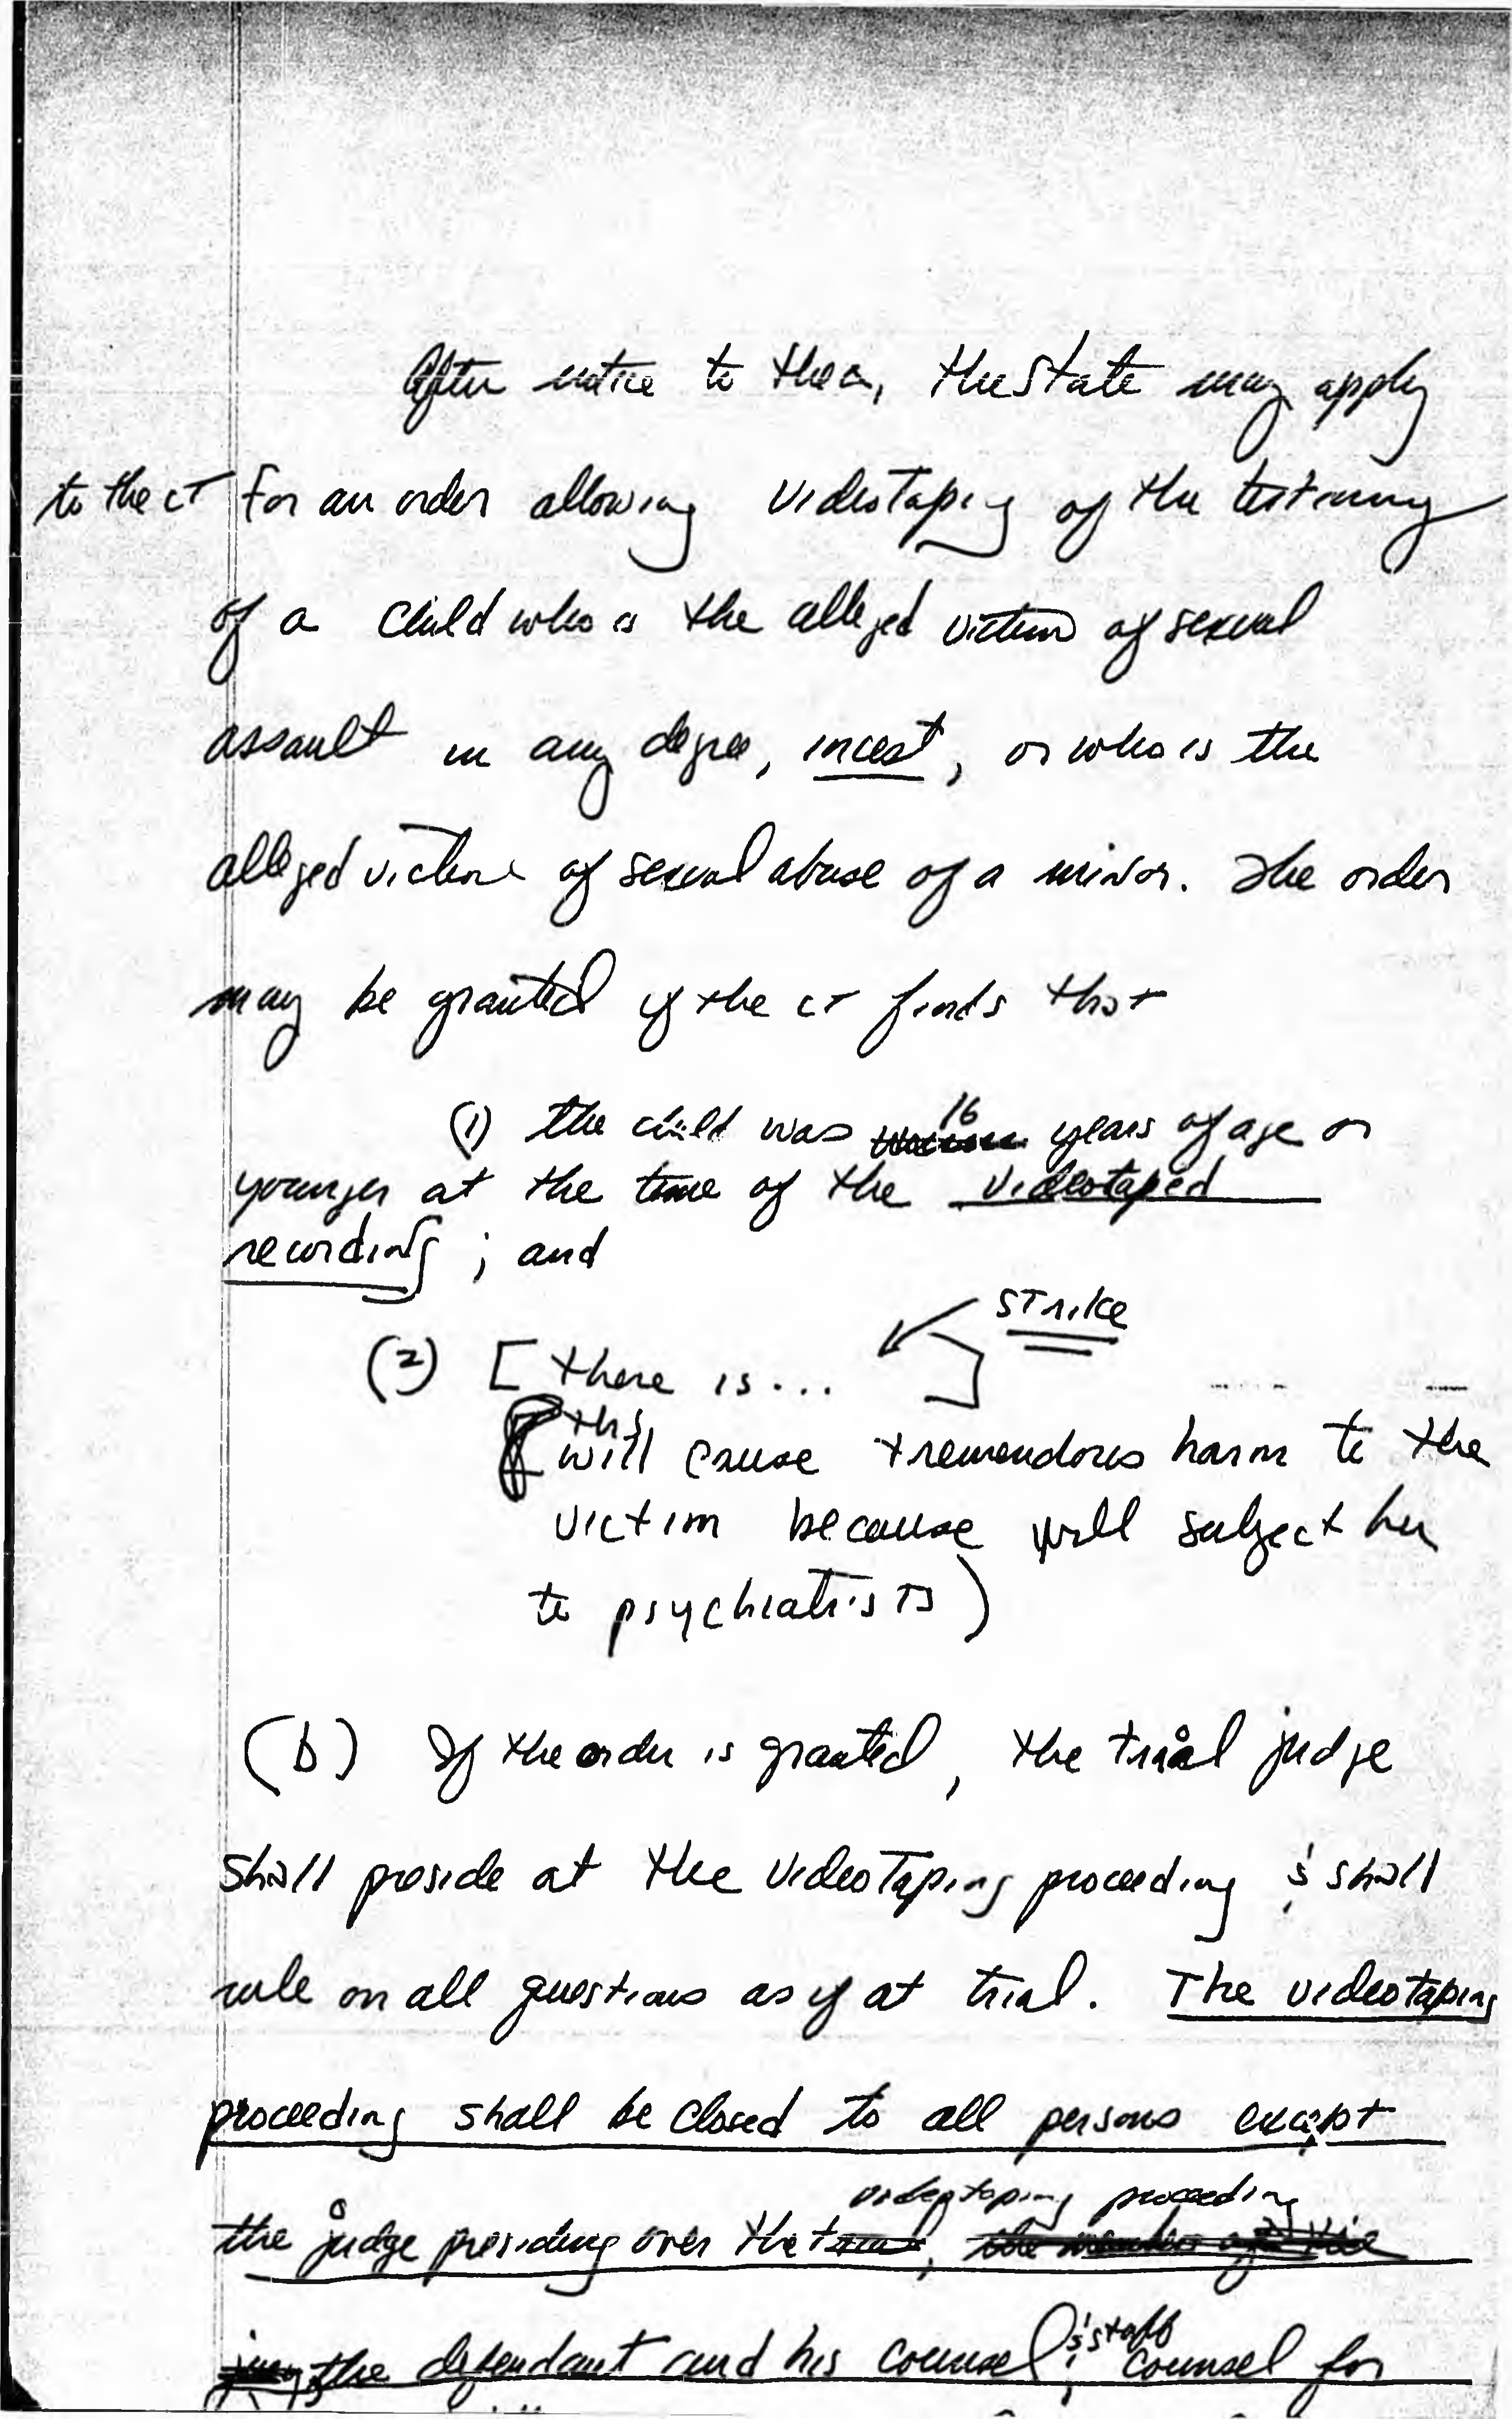 After notice to the Δ, the State may apply
to the ct for an order allowing videotaping of the testimony
of a child who is the alleged victim of sexual
assault in any degree, incest, or who is the
alleged victim of sexual abuse of a minor. The order
may be granted if the ct finds that
(1) the child was 16 years of age or
younger at the time of the videotaped
recording; and
strike
(2) [there is... ]
(this
will cause tremendous harm to the
victim because will subject her
to psychiatrists)
(b) If the order is granted, the trial judge
shall preside at the videotaping proceeding & shall
rule on all questions as if at trial. The videotaping
proceeding shall be closed to all persons except
videotaping proceeding
the judge presiding over the trial, the members of the
& staff
jury, the defendant and his counsel, counsel for